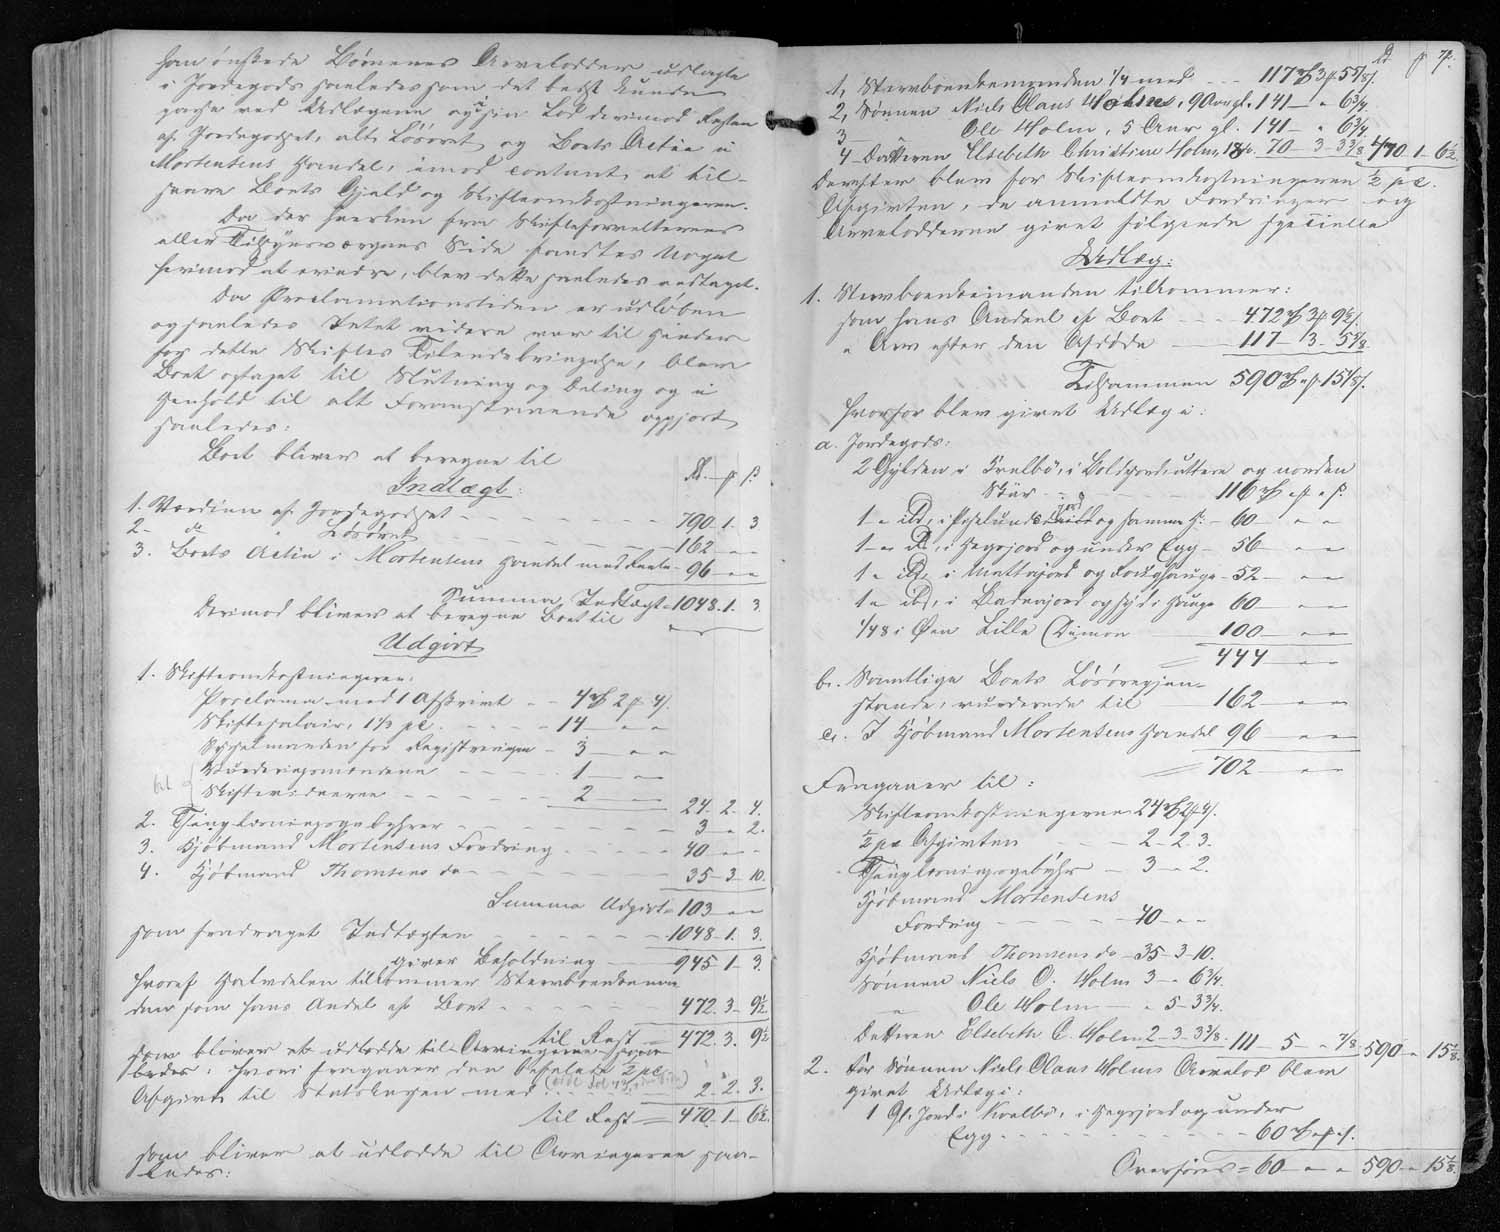 han ønskede Børnenes Arvelodder udlagte
i Jordegods saaledes som det bedst kunde
passe ved Udlægene og sin Lod derimod Resten
af Jordegodset, alt Løsøret og Boets Actie i
Mortensens Handel, imod contant at til-
svare Boets Gjæld og Skifteomkostningerne.
Da der hverken fra Skifteforvalterens
eller Tilsynsværgens Side fandtes Noget
herimod at erindre, blev dette saaledes vedtaget.
Da Proclamationstiden er udløben
og saaledes Intet videre var til Hinder
for dette Skiftes Tilendebringelse, blev
Boet optaget til Slutning og Deling og i
Henhold til alt Foranstaaende opgjort
saaledes:
Boet bliver at beregne til
Indtægt:
1. Værdien af Jordegodset - - - 790. 1. 3
2. do Løsøret - - - 162 - -
3. Boets Actie i Mortensens Handel med Rente - 96 - -
Summa Indtægt = 1048. 1. 3.
Derimod bliver at beregne Boet til
Udgift
1. Skifteomkostningerne:
Proclama med 1 Afskrivt - - 4 rd 2 p 4 s.
Skiftesalair, 1⅓ pC. - - 14 - -
Sysselmanden for Registreringen - 3 - -
Vurderingsmændene - - - 1 - -
Skiftevidnerne - - - 2 - - 24. 2. 4.
2. Thinglæsningsgebyhrer - - - 3 - 2.
3. Kjøbmand Mortensens Fordring - - - 40 - -
4. Kjøbmand Thomsens do - - - 35 - 3 - 10.
Summa Udgift = 103 - -
som fradraget Indtægten - - - 1048 - 1. 3.
giver Beholdning - - 945 - 1 - 3.
hvoraf Halvdelen tilkommer Stervboenkeman-
den som hans Andel af Boet - - - 472. 3 - 9½.
til Rest = 472. 3. 9½
som bliver at udlodde til Arvingerne
hvori fragaaer den befalede ½ pC.
Afgivt til Statskassen med - - - 2. 2. 3.
til Rest = 470. 1 - 6½.
som bliver at udlodde til Arvingerne saa-
ledes:
1, Stervboenkemanden ¼ med - - - 117 rd 3 p 5⅝ s.
2, Sønnen Niels Claus Holm, 9 Aar gl. 141 - " 6¾.
3 " Ole Holm, 5 Aar gl. 141 - " 6¾.
4 Datteren Elsebeth Christine Holm, 70 - 3 - 3⅜. 470. 1 - 6½.
Derefter blev for Skifteomkostningerne ½ pC.
Afgivten, de anmeldte Fordringer og
Arvelodderne givet følgende specielle
Udlæg:
1. Stervboenkemanden tilkommer:
som hans Andeel af Boet - - - 472 rd 3 p 9½ s.
" Arv efter den Afdøde - - - 117 - 3 - 5⅝.
Tilsammen 590 rd " p 15⅛ s.
hvorfor blev givet Udlæg i:
a. Jordegods:
2 Gylden i Kvalbø, i Boldgjord, uttere og norden
Skår - - - 116 rd " p " s.
1 " ibd, i og samme - 60 - " "
1 " ibd, i Hegsjord og under Egg - 56 - " "
1 " ibd, i Mettajord og - 52 - " "
1 " ibd, i og 60 - " "
1/48 i Øen Lille Dimon 100 - " "
444 - " "
b. Samtlige Boets Løsøregjen-
stande, vurderede til - 162 - " "
c. I Kjøbmand Mortensens Handel 96 - " "
702 - " "
Fragaaer til:
Skifteomkostningerne 24 rd 2 p 4 s.
½ pC Afgivten - - - 2 - 2. 3.
Thinglæsningsgebyhr - 3 - " 2.
Kjøbmand Mortensens
Fordring - - - 40 - " "
Kjøbmand Thomsens do - 35 - 3 - 10.
Sønnen Niels C. Holm 3 - " 6¾.
" Ole Holm - - " 5 - 3¾.
Datteren Elsebeth C. Holm 2 - 3 - 3⅜. 111 - 5 - " ⅞ 590 " 15⅛.
2. For Sønnen Niels Claus Holms Arvelod blev
givet Udlæg i:
1 Gl. Jord i Kvalbø, i Hegsjord og under
Egg - - - 60 rd " p " s.
Overføres = 60 - " " 590 " 15⅛.